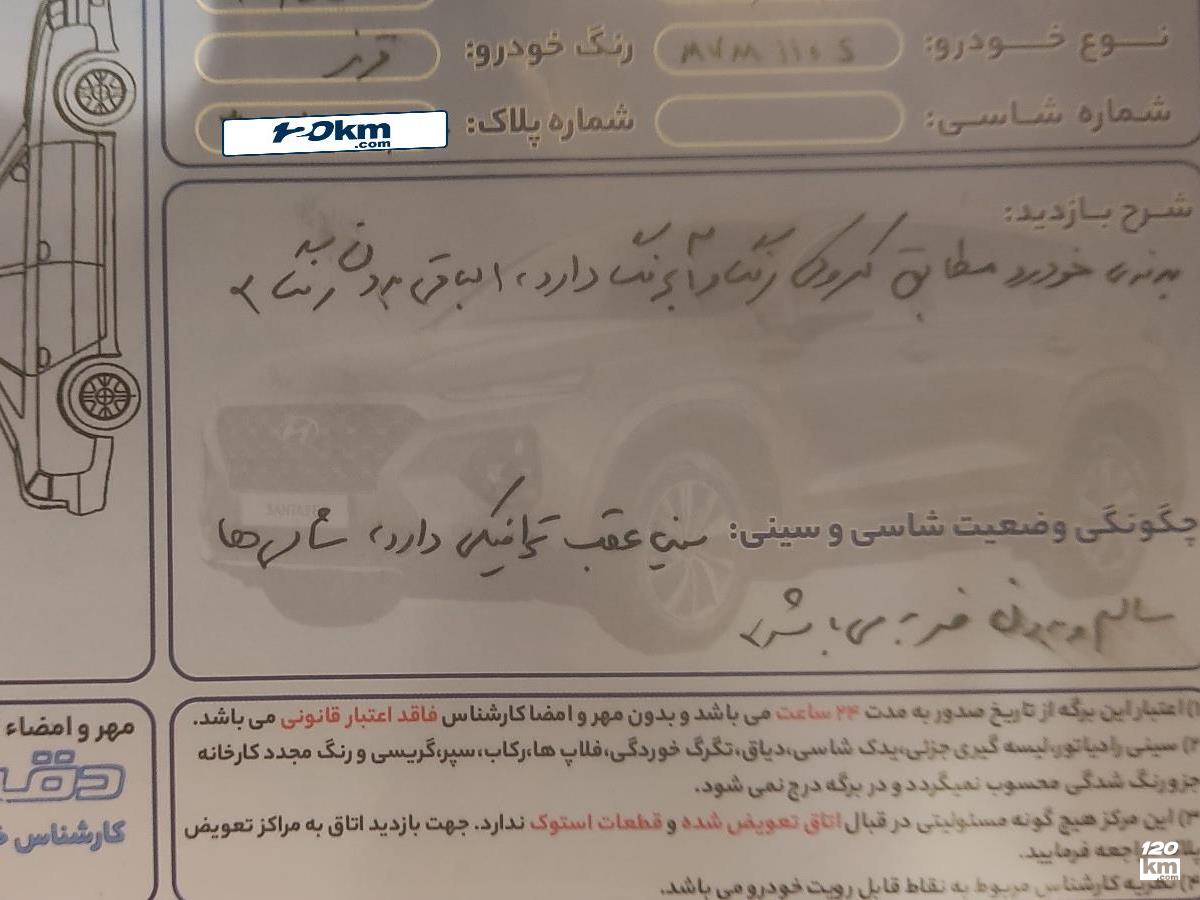 نوع خودرو: MVM 110 S رنگ خودرو: قرمز
شماره شاسی: شماره پلاک: 120km.com
شرح بازدید:
بدنه‌ی خودرو مطابق کروکی رنگ و آبرنگ دارد، الباقی بدون رنگ
چگونگی وضعیت شاسی و سینی: سینی عقب ترافیکی دارد، شاسی‌ها
سالم و بدون ضربه می‌باشد
۱) اعتبار این برگه از تاریخ صدور به مدت ۲۴ ساعت می باشد و بدون مهر و امضا کارشناس فاقد اعتبار قانونی می باشد.
۲) سینی رادیاتور،لیسه گیری جزئی،یدک شاسی،دیاق،تگرگ خوردگی،فلاپ ها،رکاب،سپر،گریسی و رنگ مجدد کارخانه
جزو رنگ شدگی محسوب نمیگردد و در برگه درج نمی شود.
۳) این مرکز هیچ گونه مسئولیتی در قبال اتاق تعویض شده و قطعات استوک ندارد. جهت بازدید اتاق به مراکز تعویض
مراجعه فرمایید.
۴) نظریه کارشناس مربوط به نقاط قابل رویت خودرو می باشد.
مهر و امضاء
کارشناس
SANTAFE
120
km
.com